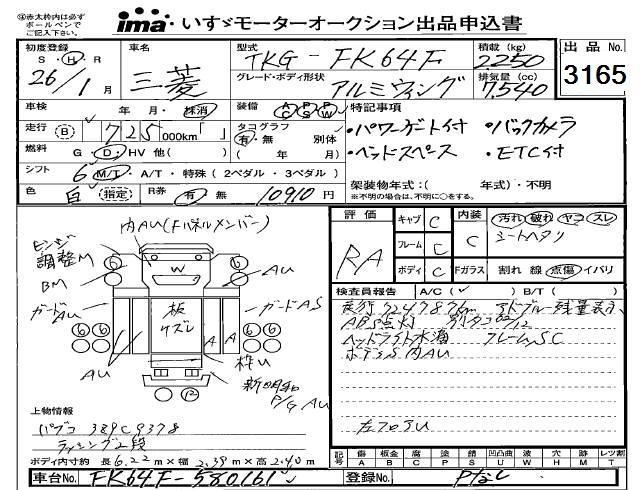 ㊟赤太枠内は必ず
ボールペンで
ご記入下さい。
ima いすゞモーターオークション出品申込書
初度登録 車名 型式 積載(kg) 出品No.
S・H・R TKG-FK64F 2250
26/1月 三菱 グレード・ボディ形状 排気量(cc) 3165
アルミウィング 7,540
車検 年 月・抹消 装備 AC PS PW 特記事項
走行 B 725,000km「 」 タコグラフ 有・無 別体 ・パワーゲート付 ・バックカメラ
燃料 G・D・HV 他( ) ( 年 月) ・ベッドスペース ・ETC付
シフト 6 M/T・A/T・特殊(2ペダル・3ペダル)
色 白 指定 R券 有 無 10910円 架装物年式:( 年式)・不明
※不明の場合は、不明に○をする。
評価 キャブ C 内装 汚れ 破れ ヤコ スレ
RA フレーム C C シートヘタリ
ボディ C Fガラス 割れ 線 点傷 イバリ
検査員報告 A/C( ✓ ) B/T( )
走行724787km アドブルー残量表示
ABS点灯
ヘッドライト水滴 フレームS,C
ボディS内AU
左フロアU
内AU(Fパネルメンバー)
ヒンジ
調整M
BM
AU
W
ガードAU
板
ケズレ
ガードAS
A A
AU
枠U
新明和
P/G AU
上物情報
パブコ 38PC9378
ラッシング2段
ボディ内寸約 長6.22m×幅2.39m×高2.40m
記号 傷A 板金B 腐C 凹P 錆S 凹凸曲U 波W 穴H 跡M レツ割T
車台No. FK64F-580161 登録No. Pなし